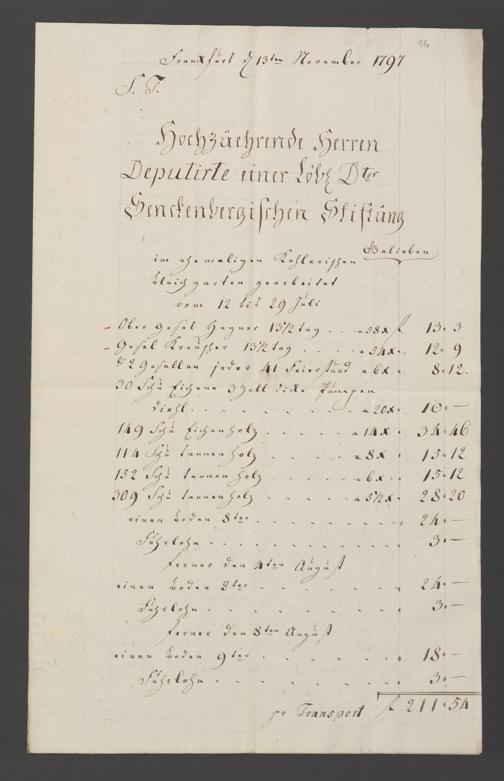 14
Franckfurt d 13ten November 1797
S. T.
Hochzüehrende Herren
Deputirte einer Löbl Dtor
Senckenbergischen Stiftüng
Belieben
im ehemaligen Kohlerischen
bleich garten gearbeitet
vom 12 bis 29 Jüli
Ober gesel Hagner 13½ tag . . a 58x f 13 " 3
gesel Kreuscher 13½ tag . . . a 54x " 12 " 9
2 gesellen jeder 41 Feierstünd a 6x " 8 " 12
30 Schü Eichene 3 Zoll dicke
diehl . . . . . . . . a 20x " 10 " —
149 Schü Eichenholz . . . . a 14x " 34 " 46
114 Schü tannenholz . . . . a 8x " 15 " 12
152 Schü tannenholz . . . . a 6x " 15 " 12
309 Schü tannenholz . . . . a 5½x " 28 " 20
einen boden 8ter . . . . . . . . " 24 " —
Führlohn . . . . . . . . . . " 3 " —
ferner den 4ten August
einen boden 8ter . . . . . . . " 24 " —
Führlohn . . . . . . . . . . " 3 " —
ferner den 8ten August
einen boden 9ter . . . . . . . " 18 " —
Führlohn . . . . . . . . . . " 3 " —
pr Transport f 211 " 54